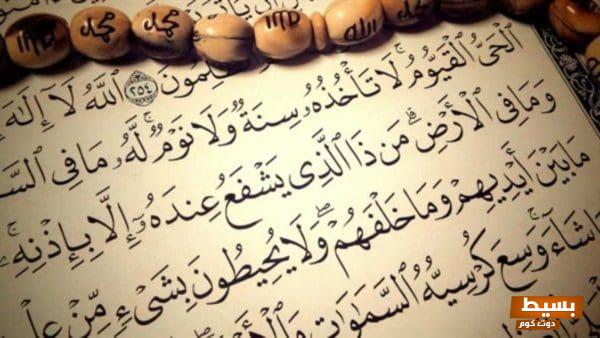 محمد محمد الله محمد
٢٥٤ ٱللَّهُ لَآ إِلَٰهَ
ٱلْحَىُّ ٱلْقَيُّومُ ۚ لَا تَأْخُذُهُۥ سِنَةٌ وَلَا نَوْمٌ ۚ لَّهُۥ مَا فِى ٱلسَّ
وَمَا فِى ٱلْأَرْضِ ۗ مَن ذَا ٱلَّذِى يَشْفَعُ عِندَهُۥٓ إِلَّا بِإِذْنِهِۦ ۚ
مَا بَيْنَ أَيْدِيهِمْ وَمَا خَلْفَهُمْ ۖ وَلَا يُحِيطُونَ بِشَىْءٍ مِّنْ عِلْ
شَآءَ ۚ وَسِعَ كُرْسِيُّهُ ٱلسَّمَٰوَٰتِ
بسيط
دوت كوم